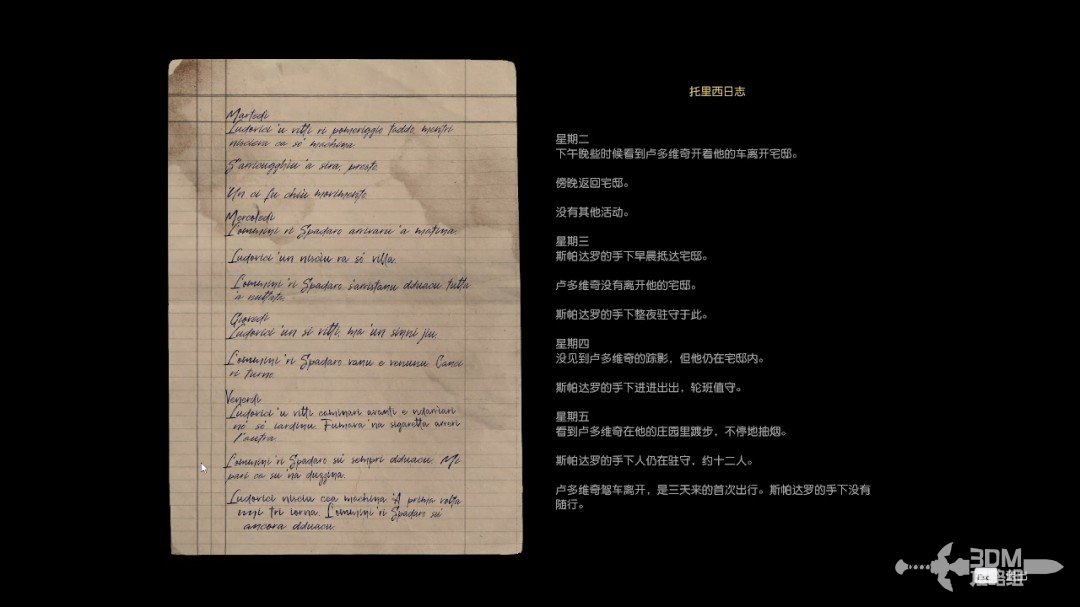 Martedì
Ludovici 'u vitti ri pomeriggio taddo, mentri
nisciera ca so' machina.
S'arricugghiu 'a sira, presto.
Un ci fu chiù movimento.
Mercoledì
L'omunini ri Spadaro arrivaru 'a matina.
Ludovici 'un nisciu ra so' villa.
L'omunini 'ri Spadaro s'arristanu dduacu tutta
'a nuttata.
Giovedì
Ludovici 'un si vitti, ma 'un sinni jiu.
L'omunini 'ri Spadaro vanu e venunu. Canci
ri turno.
Venerdì
Ludovici 'u vitti caminari avanti e
no' so' iardinu. Fumava 'na sigaretta arreri
l'autra.
L'omunini 'ri Spadaro su' sempri dduacu. Mi
pari ca su 'na duzzina.
Ludovici nisciu cca machina. 'A prima volta
tri iorna. L'omunini 'ri Spadaro su'
ancora dduacu.
托里西日志
星期二
下午晚些时候看到卢多维奇开着他的车离开宅邸。
傍晚返回宅邸。
没有其他活动。
星期三
斯帕达罗的手下早晨抵达宅邸。
卢多维奇没有离开他的宅邸。
斯帕达罗的手下整夜驻守于此。
星期四
没见到卢多维奇的踪影，但他仍在宅邸内。
斯帕达罗的手下进进出出，轮班值守。
星期五
看到卢多维奇在他的庄园里踱步，不停地抽烟。
斯帕达罗的手下人仍在驻守，约十二人。
卢多维奇驾车离开，是三天来的首次出行。斯帕达罗的手下没有
随行。
3DM
攻略组
Esc